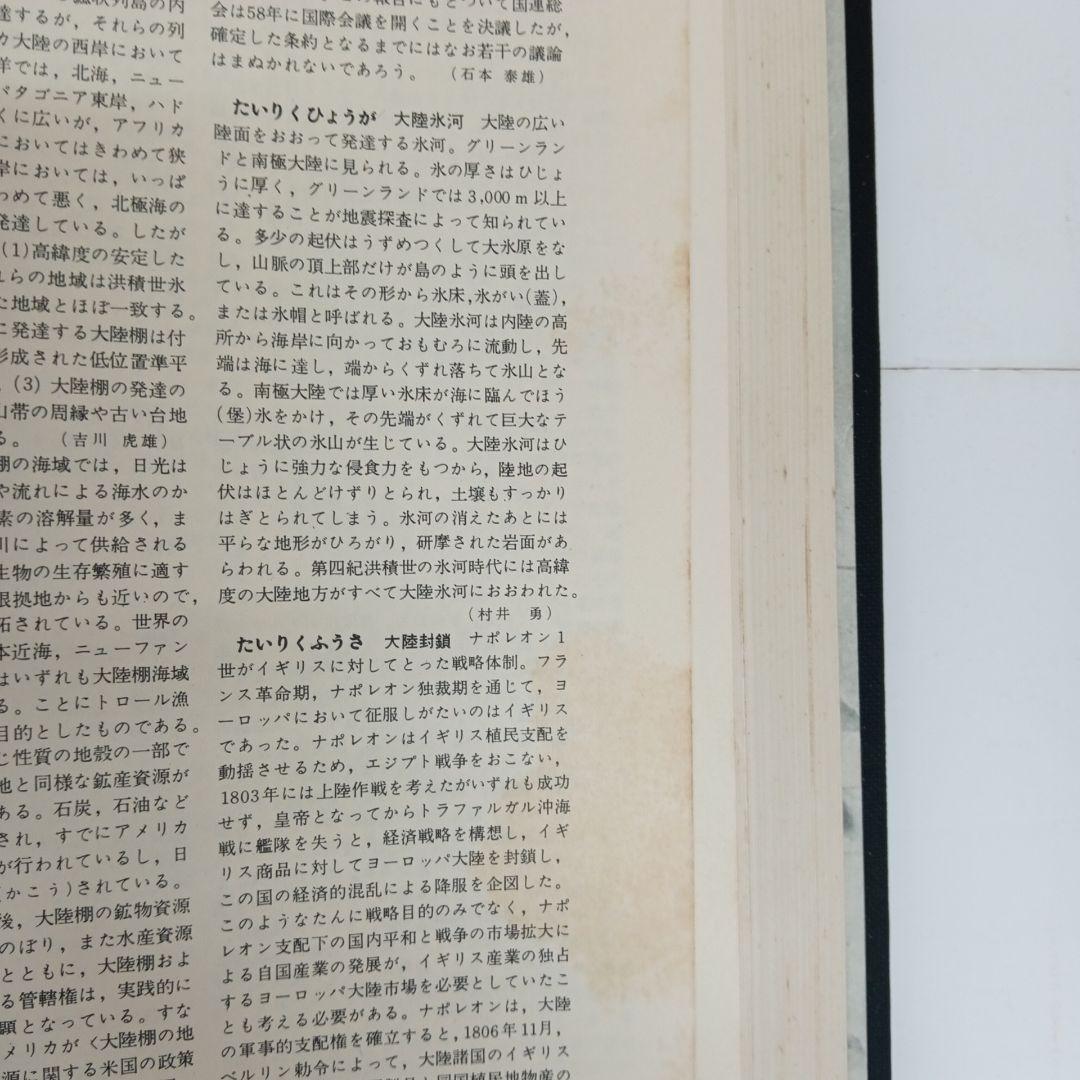 達するが，それらの列
カ大陸の西岸において
洋では，北海，ニュー
パタゴニア東岸，ハド
くに広いが，アフリカ
においてはきわめて狭
岸においては，いっぱ
わめて悪く，北極海の
発達している。したが
(1)高緯度の安定した
れらの地域は洪積世氷
た地域とほぼ一致する。
に発達する大陸棚は付
形成された低位置準平
(3) 大陸棚の発達の
山帯の周縁や古い台地
る。 (吉川 虎雄)
棚の海域では，日光は
や流れによる海水のか
素の溶解量が多く，ま
川によって供給される
生物の生存繁殖に適す
根拠地からも近いので，
拓されている。世界の
本近海，ニューファン
はいずれも大陸棚海域
る。ことにトロール漁
目的としたものである。
じ性質の地殻の一部で
地と同様な鉱産資源が
ある。石炭，石油など
され，すでにアメリカ
が行われているし，日
(かこう)されている。
後，大陸棚の鉱物資源
のぼり，また水産資源
とともに，大陸棚およ
る管轄権は，実践的に
題となっている。すな
メリカが〈大陸棚の地
源に関する米国の政策
の報告にもとづいて国連総
会は58年に国際会議を開くことを決議したが，
確定した条約となるまでにはなお若干の議論
はまぬかれないであろう。 (石本 泰雄)
たいりくひょうが 大陸氷河 大陸の広い
陸面をおおって発達する氷河。グリーンラン
ドと南極大陸に見られる。氷の厚さはひじょ
うに厚く，グリーンランドでは3,000m以上
に達することが地震探査によって知られてい
る。多少の起伏はうずめつくして大氷原をな
し，山脈の頂上部だけが島のように頭を出し
ている。これはその形から氷床，氷がい(蓋)，
または氷帽と呼ばれる。大陸氷河は内陸の高
所から海岸に向かっておもむろに流動し，先
端は海に達し，端からくずれ落ちて氷山とな
る。南極大陸では厚い氷床が海に臨んでほう
(堡)氷をかけ，その先端がくずれて巨大なテ
ーブル状の氷山が生じている。大陸氷河はひ
じょうに強力な侵食力をもつから，陸地の起
伏はほとんどけずりとられ，土壌もすっかり
はぎとられてしまう。氷河の消えたあとには
平らな地形がひろがり，研摩された岩面があ
らわれる。第四紀洪積世の氷河時代には高緯
度の大陸地方がすべて大陸氷河におおわれた。
(村井 勇)
たいりくふうさ 大陸封鎖 ナポレオン1
世がイギリスに対してとった戦略体制。フラ
ンス革命期，ナポレオン独裁期を通じて，ヨ
ーロッパにおいて征服しがたいのはイギリス
であった。ナポレオンはイギリス植民支配を
動揺させるため，エジプト戦争をおこない，
1803年には上陸作戦を考えたがいずれも成功
せず，皇帝となってからトラファルガル沖海
戦に艦隊を失うと，経済戦略を構想し，イギ
リス商品に対してヨーロッパ大陸を封鎖し，
この国の経済的混乱による降服を企図した。
このようなたんに戦略目的のみでなく，ナポ
レオン支配下の国内平和と戦争の市場拡大に
よる自国産業の発展が，イギリス産業の独占
するヨーロッパ大陸市場を必要としていたこ
とも考える必要がある。ナポレオンは，大陸
の軍事的支配権を確立すると，1806年11月，
ベルリン勅令によって，大陸諸国のイギリス